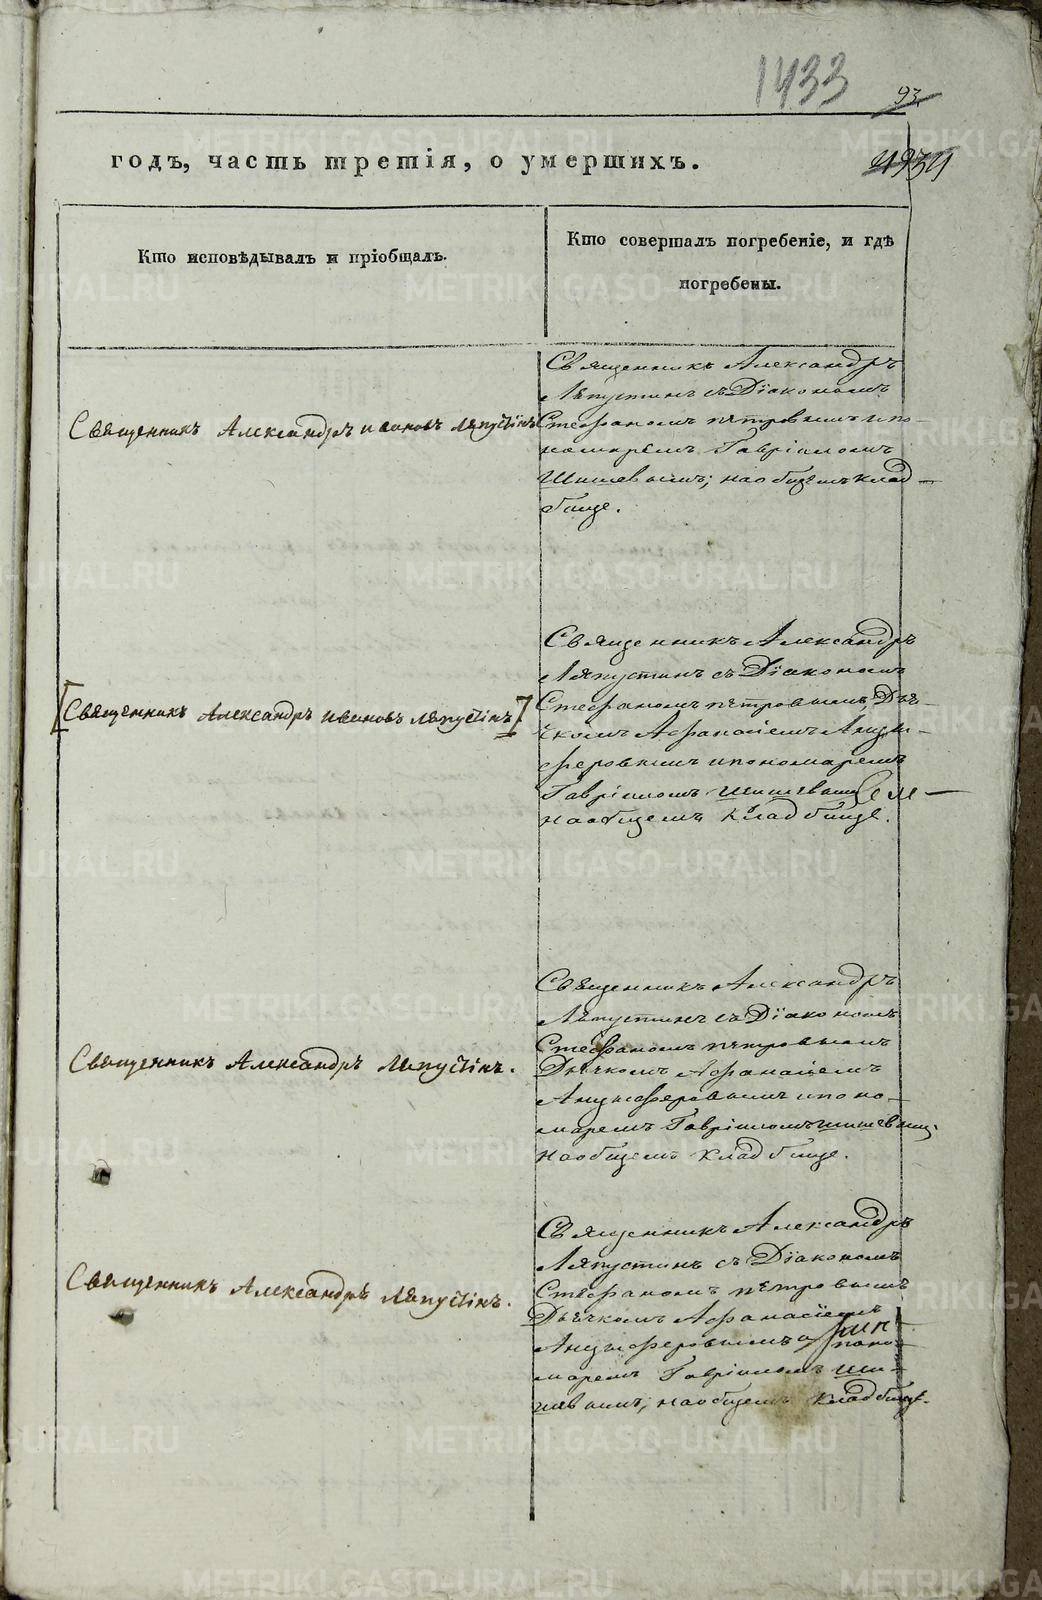 1433
93
годъ, часть третія, о умершихъ.
Кто исповѣдывалъ и пріобщалъ.
Кто совершалъ погребеніе, и гдѣ
погребены.
Священникъ Александръ Ивановъ Ляпустинъ
Священникъ Александръ
Ляпустинъ съ Діакономъ
Стефаномъ Петровымъ и по-
номаремъ Гавріиломъ
Шишевымъ; на общемъ клад-
бище.
[Священникъ Александръ Ивановъ Ляпустинъ]
Священникъ Александръ
Ляпустинъ съ Діакономъ
Стефаномъ Петровымъ, Дья-
чкомъ Афанасіемъ Анци-
феровымъ и пономаремъ
Гавріиломъ Шишевым
на общемъ кладбище.
Священникъ Александръ Ляпустінъ.
Священникъ Александръ
Ляпустинъ съ Діакономъ
Стефаномъ Петровымъ
Дьячкомъ Афанасіемъ
Анциферовымъ и поно-
маремъ Гавріиломъ Шишевым;
на общемъ кладбище.
Священникъ Александръ Ляпустінъ.
Священникъ Александръ
Ляпустинъ съ Діакономъ
Стефаномъ Петровымъ
Дьячкомъ Афанасіемъ
Анциферовымъ и поно-
маремъ Гавріиломъ Ши-
шевымъ; на общемъ кладбище.
METRIKI.GASO-URAL.RU